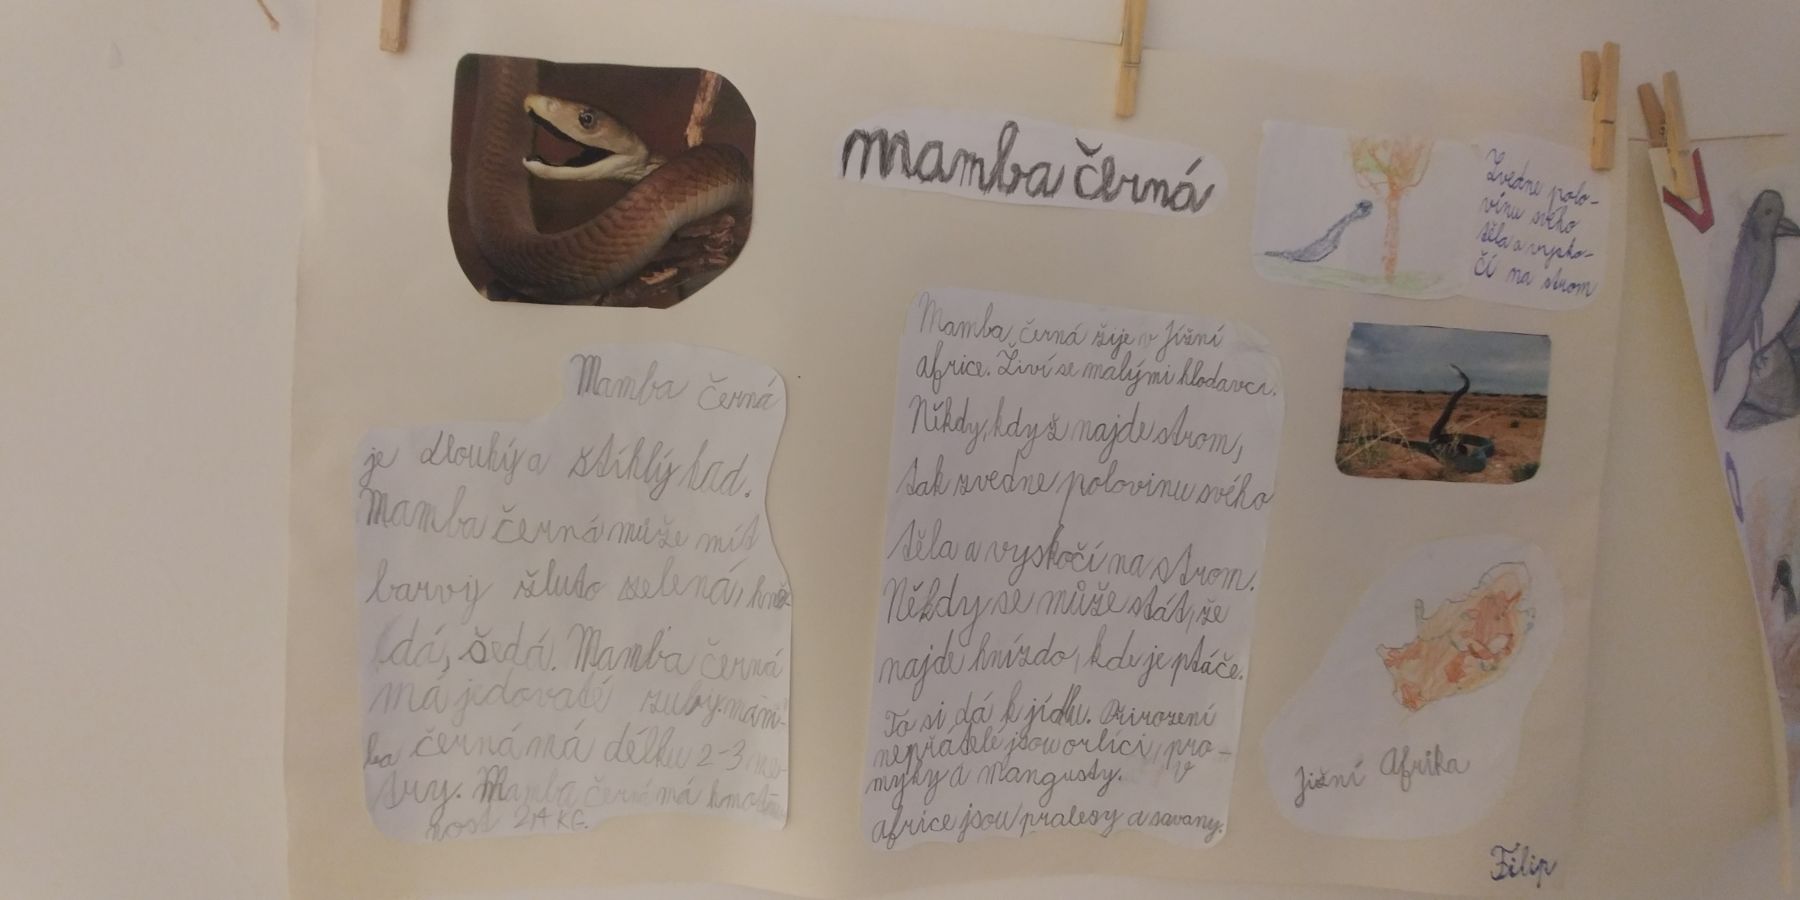 mamba černá
Zvedne polo-
vinu svého
těla a vysko-
čí na strom
Mamba černá
je dlouhý a štíhlý had.
Mamba černá může mít
barvy žluto zelená, hně-
dá, šedá. Mamba černá
má jedovaté zuby. mam-
ba černá má délku 2-3 me-
try. Mamba černá má hmot-
nost 2,4 KG.
Mamba černá žije v Jižní
africe. Živí se malými hlodavci.
Někdy, když najde strom,
tak zvedne polovinu svého
těla a vyskočí na strom.
Někdy se může stát, že
najde hnízdo, kde je ptáče.
To si dá k jídlu. Přirození
nepřátelé jsou orlíci, pro-
myky a mangusty. V
africe jsou pralesy a savany.
Jižní Afrika
Filip